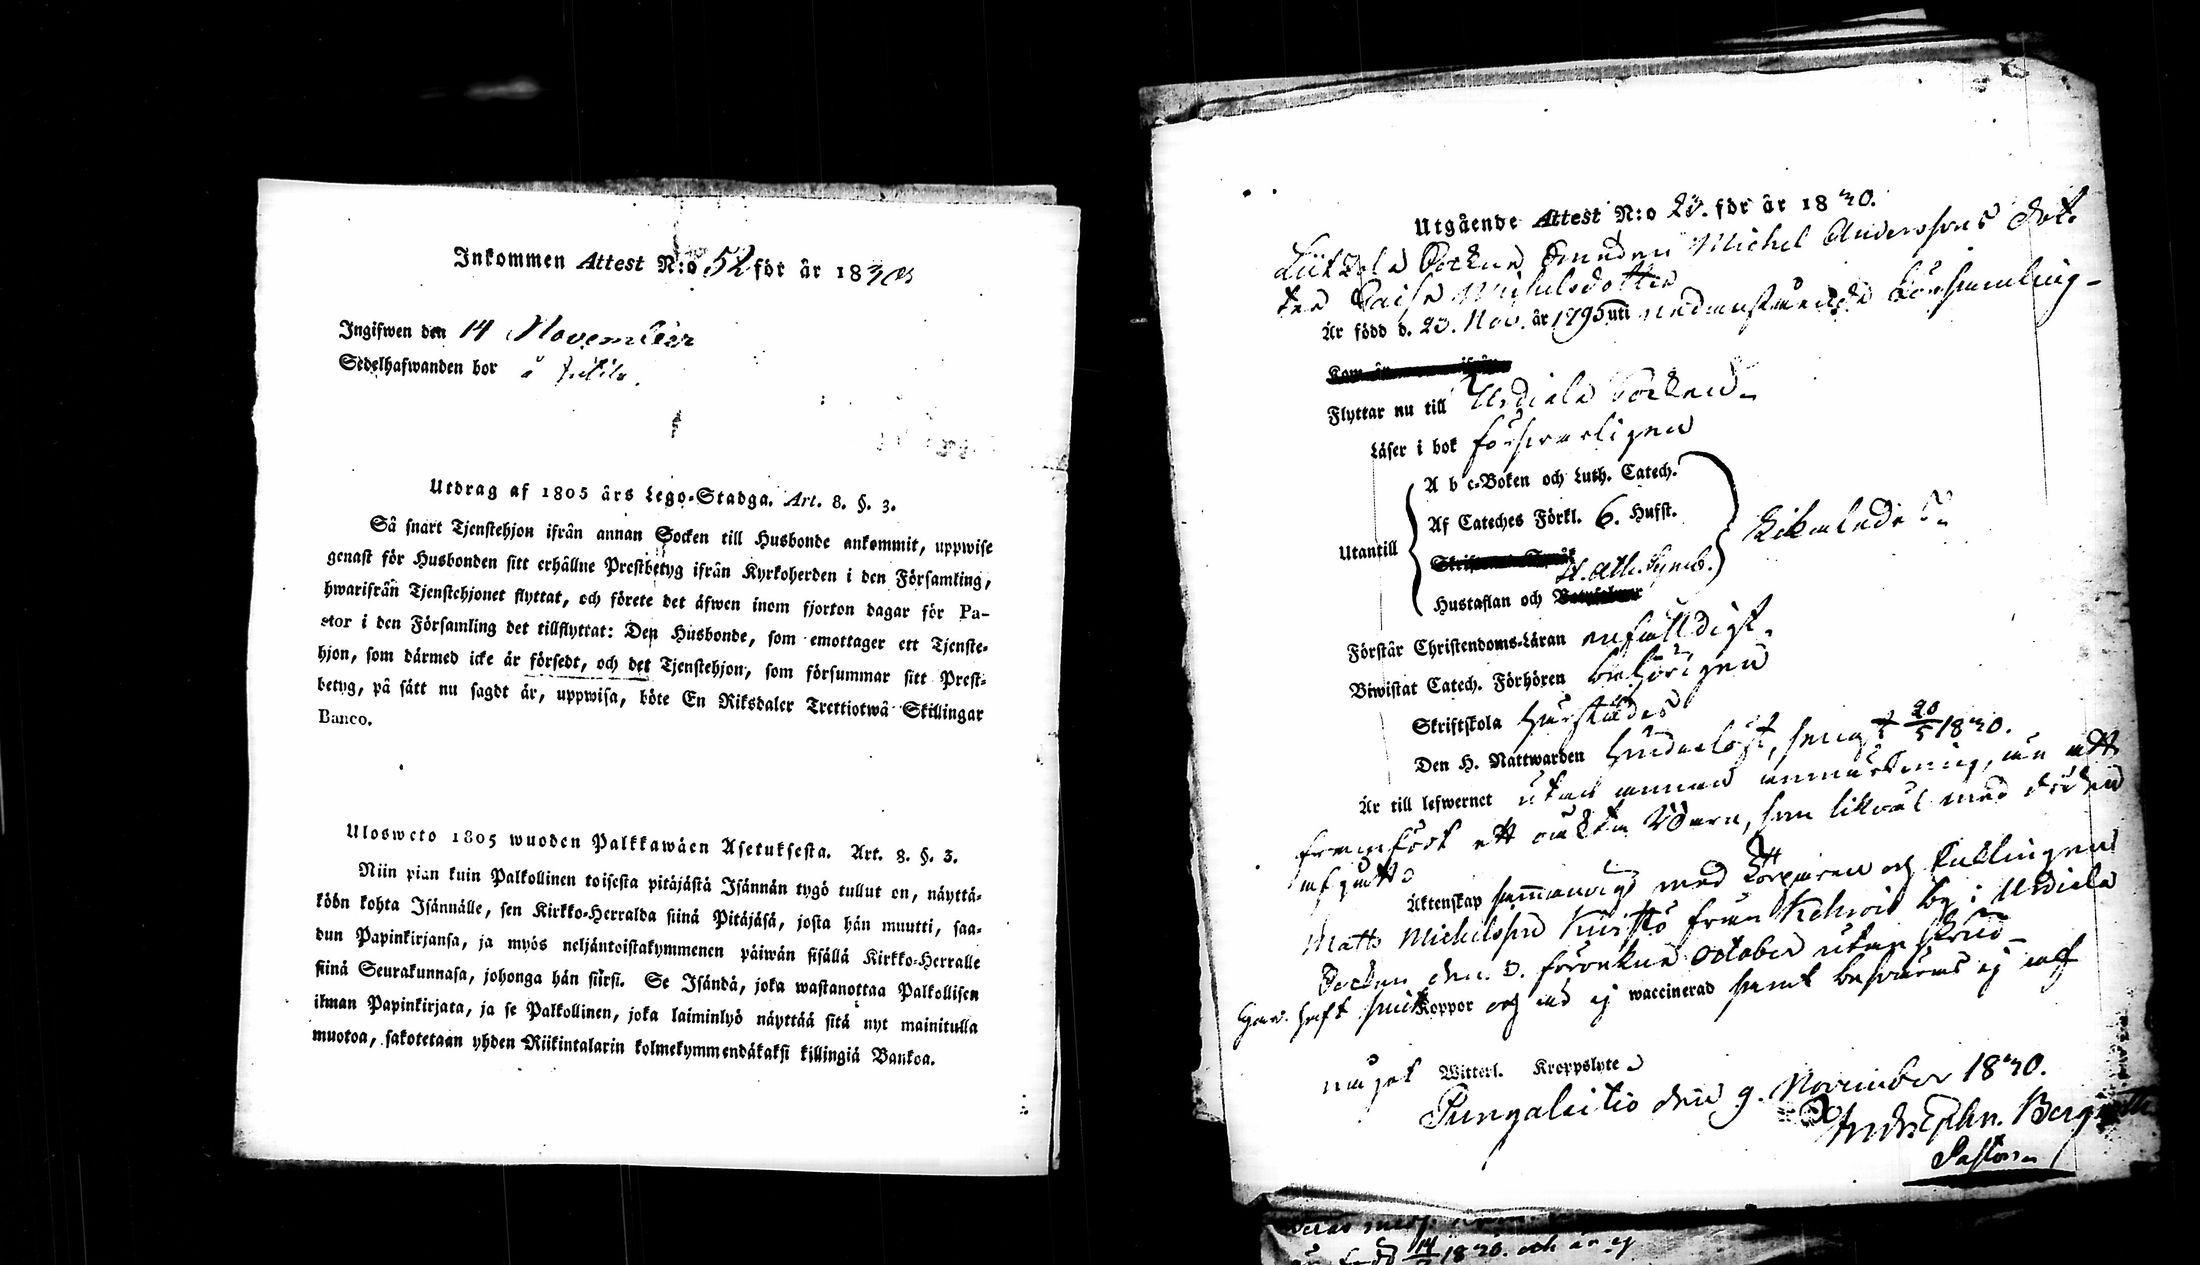 Inkommen Attest N:o 52 för år 1830
Ingifwen den 14 November
Sedelhafwanden bor å
Utdrag af 1805 års Lego-Stadga. Art. 8. §. 3.
Så snart Tjenstehjon ifrån annan Socken till Husbonde ankommit, uppwise
genast för Husbonden sitt erhållne Prestbetyg ifrån Kyrkoherden i den Församling,
hwarifrån Tjenstehjonet flyttat, och förete det äfwen inom fjorton dagar för Pa-
stor i den Församling det tillflyttat: Den Husbonde, som emottager ett Tjenste-
hjon, som därmed icke är försedt, och det Tjenstehjon, som försummar sitt Prest-
betyg, på sätt nu sagdt är, uppwisa, böte En Riksdaler Trettiotwå Skillingar
Banco.
Ulosweto 1805 wuoden Palkkawäen Asetuksesta. Art. 8. §. 3.
Niin pian kuin Palkollinen toisesta pitäjästä Isännän tygö tullut on, näyttä-
köön kohta Isännälle, sen Kirkko-Herralda siinä Pitäjäsä, josta hän muutti, saa-
dun Papinkirjansa, ja myös neljäntoistakymmenen päiwän sisällä Kirkko-Herralle
siinä Seurakunnasa, johonga hän siirsi. Se Isändä, joka wastanottaa Palkollisen
ilman Papinkirjata, ja se Palkollinen, joka laiminlyö näyttää sitä nyt mainitulla
muotoa, sakotetaan yhden Riikintalarin kolmekymmendäkaksi killingiä Bankoa.
Utgående Attest N:o 23. för år 1830.
Socknes Michel Anderssons dot
ter Caisa Michelsdotter
Är född d. 23. Nov. år 1795 uti nedanstående Församling-
Flyttar nu till Urdiala Socken.
Läser i bok försvarligen
A b c-Boken och Luth. Catech.
Af Cateches Förkl. 6. Hufst.
Utantill
H. Ath. Symb.
Hustaflan och
Förstår Christendoms-Läran enfaldigt.
Biwistat Catech. Förhören behörigen
Skriftskola härstädes
Den H. Nattwarden hinderlöst, senast 20/5 1830.
Är till lefwernet utan annan anmärkning, än att
framfödt ett oäkta barn, som likväl med döden
afgått
Äktenskap sammanvigd med Torparen och Enklingen
Matts Michelsson från by i Urdiala
Socken den 3. förevekne October utan
haft Koppor och är ej waccinerad samt besväras ej af
något Witterl. Kroppslyte
Pungalaitio den 9. November 1830.
Pastor.
14 1830. och är ej